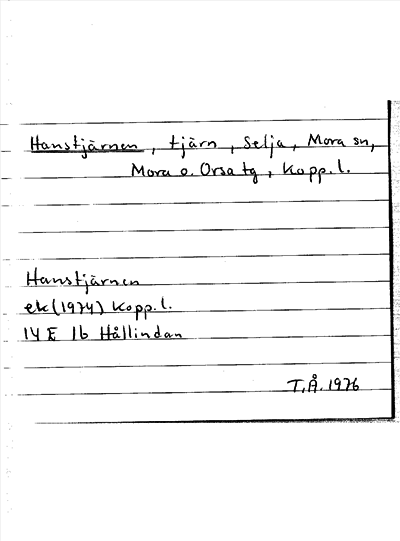 Hanstjärnen, tjärn, Selja, Mora sn,
Mora o. Orsa tg, Kopp. l.
Hanstjärnen
ek (1974) Kopp. l.
14 E 1b Hållindan
T.Å. 1976